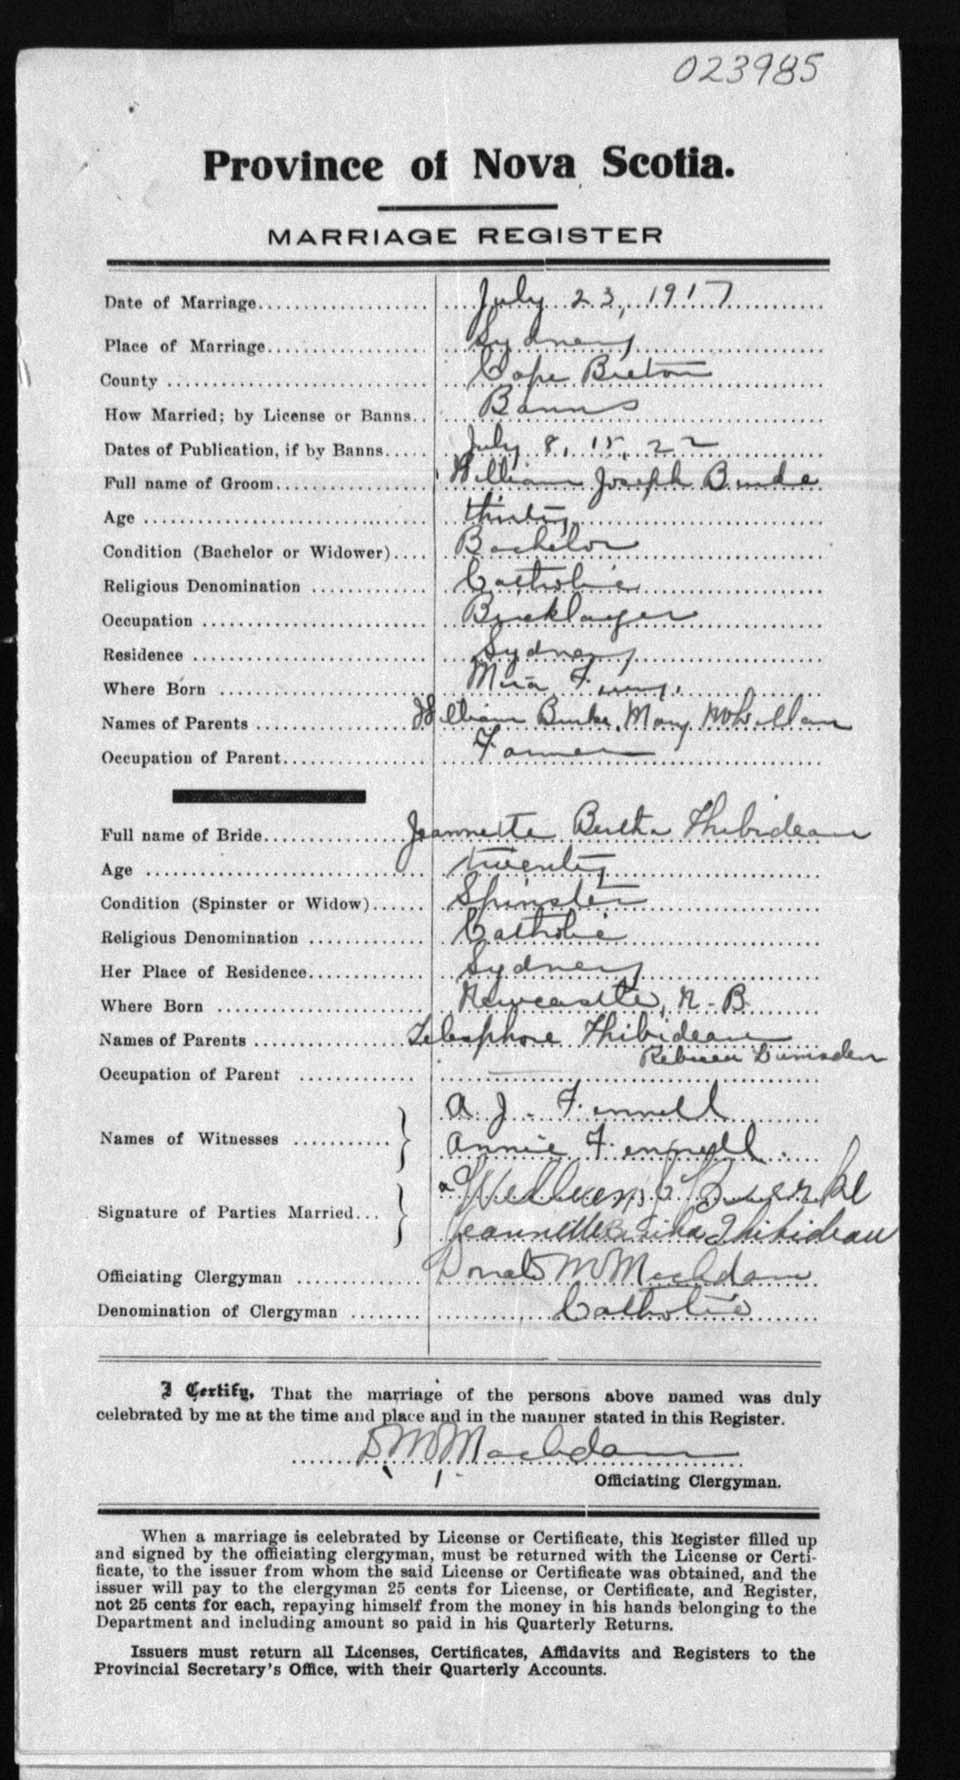 023985
Province of Nova Scotia.
MARRIAGE REGISTER
Date of Marriage July 23, 1917
Place of Marriage Sydney
County Cape Breton
How Married; by License or Banns Banns
Dates of Publication, if by Banns July 8, 15, 22
Full name of Groom William Joseph Burke
Age thirty
Condition (Bachelor or Widower) Bachelor
Religious Denomination Catholic
Occupation Bricklayer
Residence Sydney
Where Born Mira Ferry.
Names of Parents William Burke, Mary
Occupation of Parent Farmer
Full name of Bride Jeannette Bertha Thibideau
Age twenty
Condition (Spinster or Widow) Spinster
Religious Denomination Catholic
Her Place of Residence Sydney
Where Born Newcastle, N-B
Names of Parents Telesphore Thibideau
Rebecca Lumsden
Occupation of Parent
Names of Witnesses
A. J. Fennell
Annie Fennell.
Signature of Parties Married
William J Burke
Jeannette Bertha Thibideau
Officiating Clergyman Donald M MacAdam
Denomination of Clergyman Catholic
I Certify, That the marriage of the persons above named was duly
celebrated by me at the time and place and in the manner stated in this Register.
D M MacAdam
Officiating Clergyman.
When a marriage is celebrated by License or Certificate, this Register filled up
and signed by the officiating clergyman, must be returned with the License or Certi-
ficate, to the issuer from whom the said License or Certificate was obtained, and the
issuer will pay to the clergyman 25 cents for License, or Certificate, and Register,
not 25 cents for each, repaying himself from the money in his hands belonging to the
Department and including amount so paid in his Quarterly Returns.
Issuers must return all Licenses, Certificates, Affidavits and Registers to the
Provincial Secretary's Office, with their Quarterly Accounts.